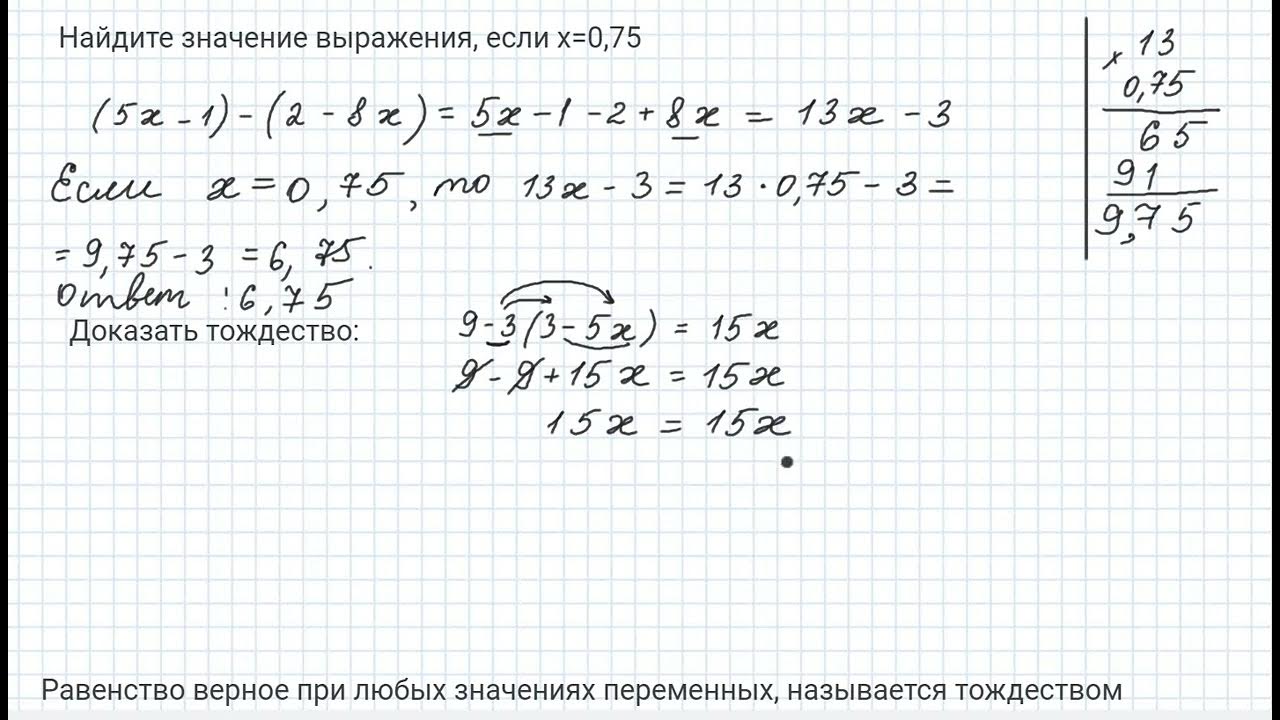 Найдите значение выражения, если x=0,75
(5x - 1) - (2 - 8x) = 5x - 1 - 2 + 8x = 13x - 3
Если x = 0,75, то 13x - 3 = 13 · 0,75 - 3 =
= 9,75 - 3 = 6,75.
Ответ : 6,75
x 13
0,75
65
91
9,75
Доказать тождество:
9 - 3(3 - 5x) = 15x
9 - 9 + 15x = 15x
15x = 15x
Равенство верное при любых значениях переменных, называется тождеством